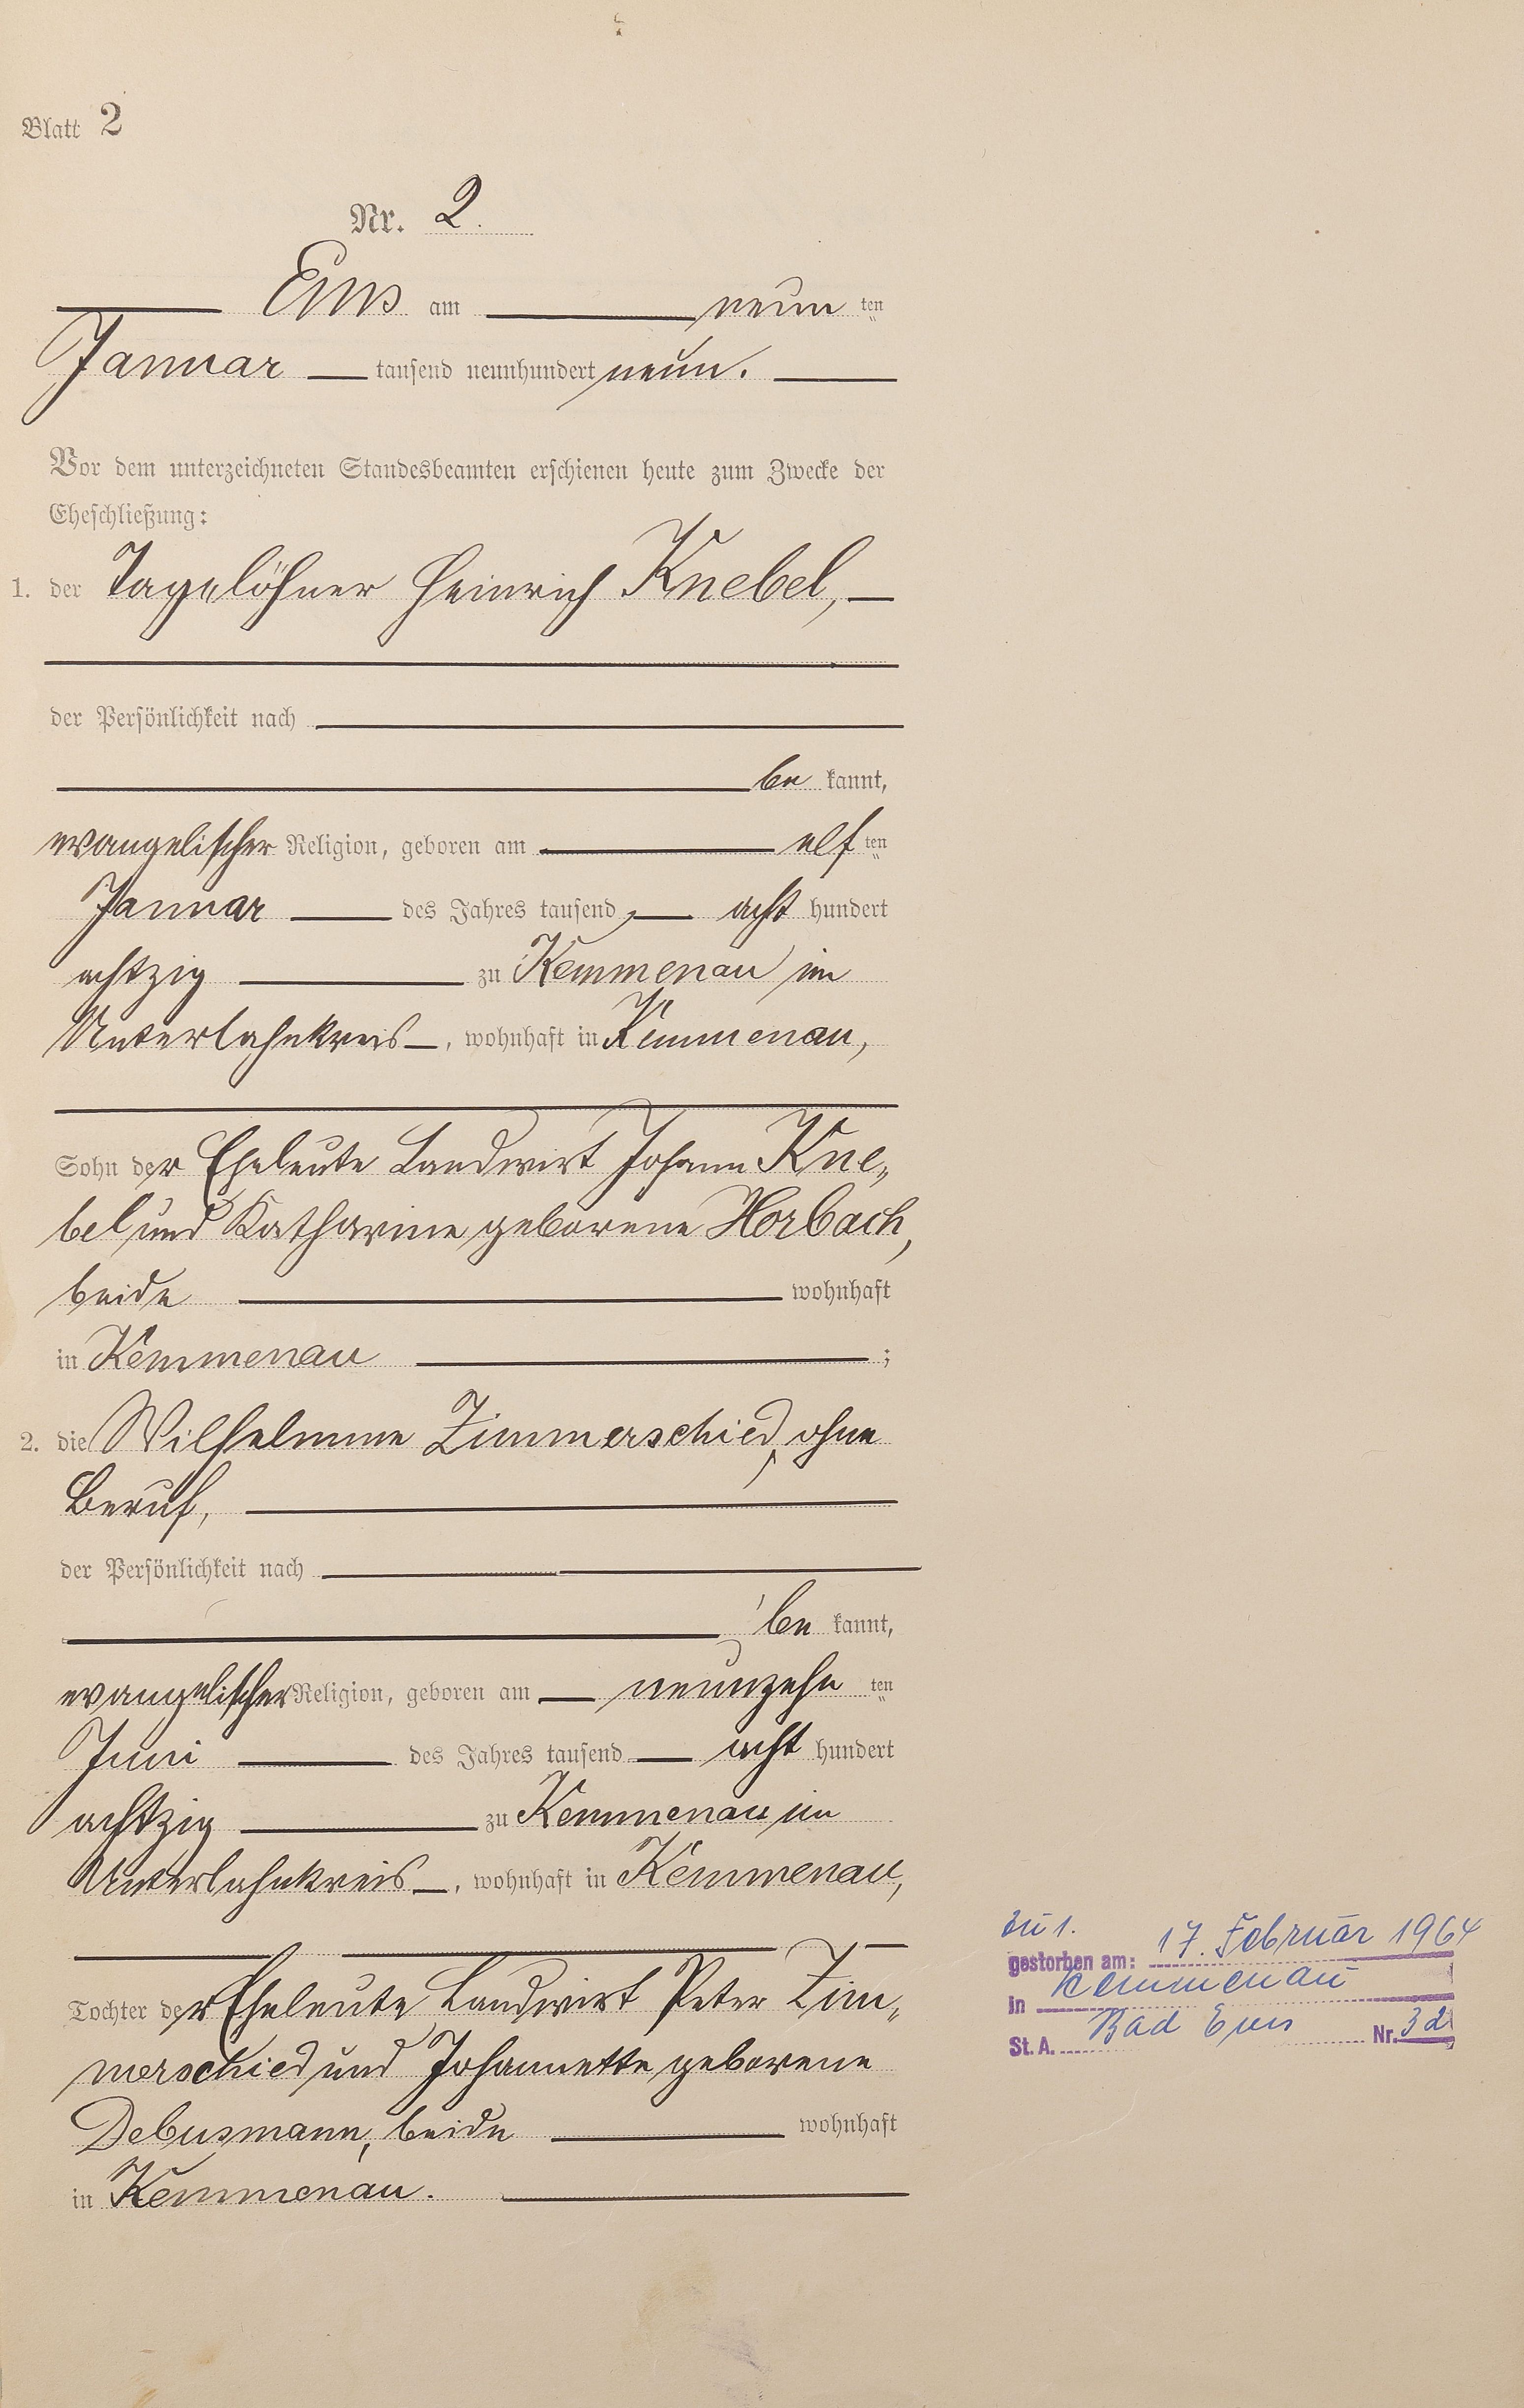 Blatt 2
Nr. 2.
Ems am neun ten
Januar tausend neunhundert neun.
Vor dem unterzeichneten Standesbeamten erschienen heute zum Zwecke der
Eheschließung:
1. der Tagelöhner Heinrich Knebel,
der Persönlichkeit nach
be kannt,
evangelischer Religion, geboren am elf ten
Januar des Jahres tausend acht hundert
achtzig zu Kemmenau im
Unterlahnkreis, wohnhaft in Kemmenau,
Sohn der Eheleute Landwirt Johann Kne„
bel und Katharine geborene Horbach,
beide wohnhaft
in Kemmenau ;
2. die Wilhelmine Zimmerschied, ohne
Beruf,
der Persönlichkeit nach
be kannt,
evangelischer Religion, geboren am neunzehn ten
Juni des Jahres tausend acht hundert
achtzig zu Kemmenau im
Unterlahnkreis, wohnhaft in Kemmenau,
Tochter der Eheleute Landwirt Peter Zim„
merschied und Johannette geborene
Debusmann, beide wohnhaft
in Kemmenau.
zu 1.
gestorben am: 17. Februar 1964
in Kemmenau
St. A. Bad Ems Nr. 32